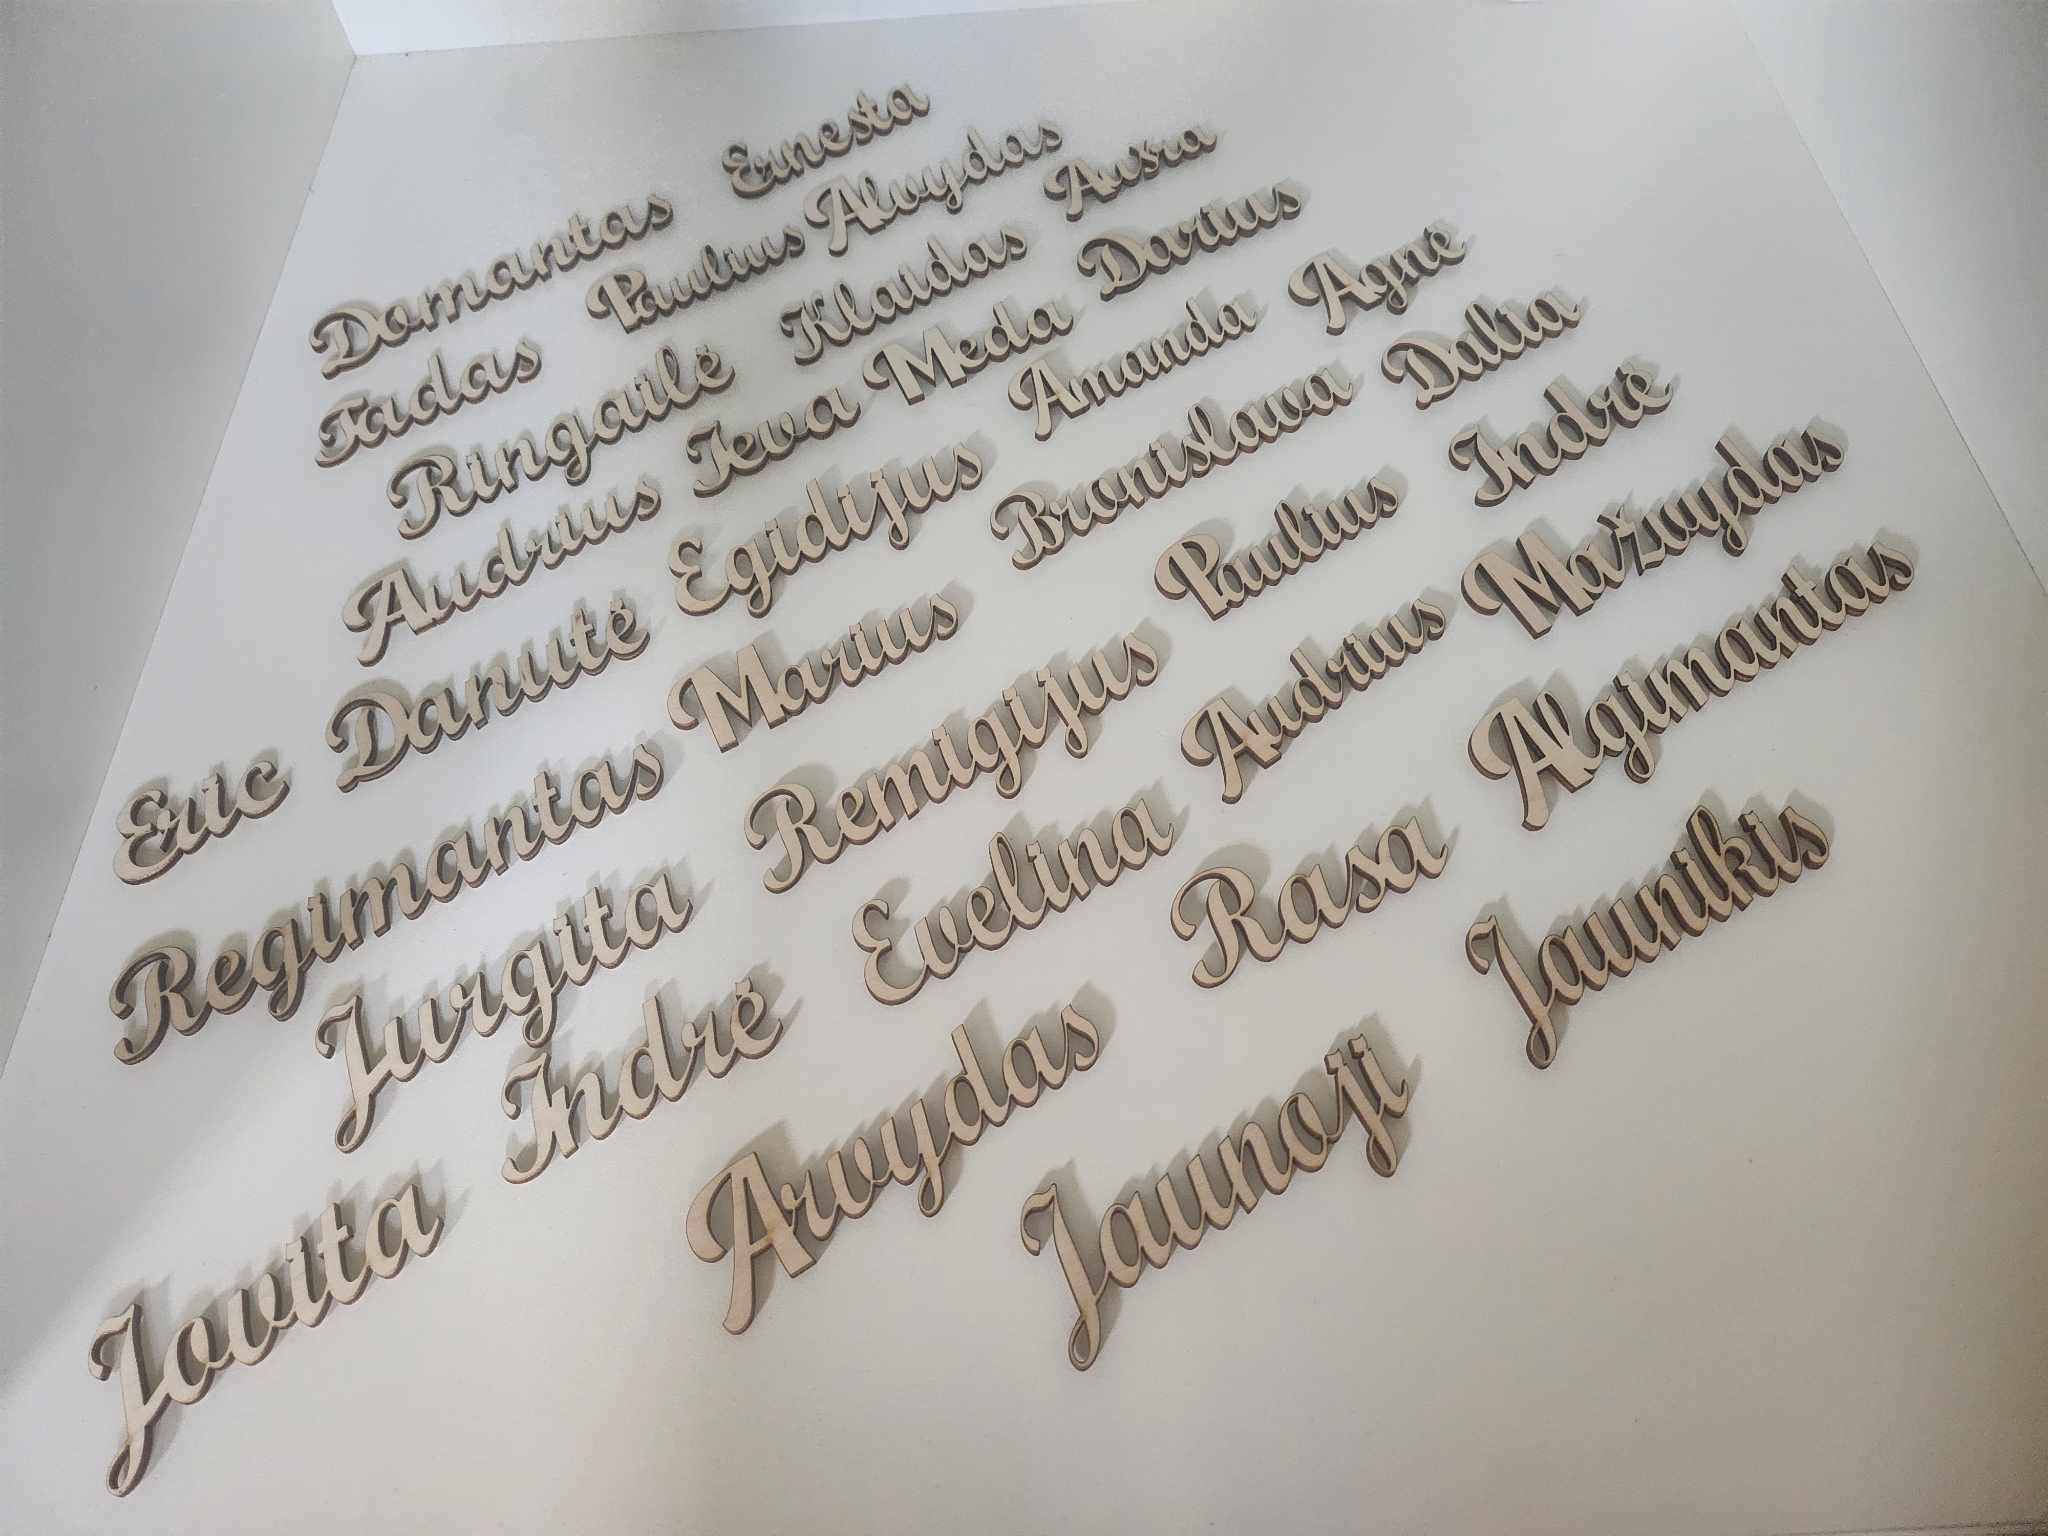 Domantas Ernesta
Tadas Paulius Alvydas
Ringailė Klaidas Aušra
Audrius Ieva Meda Darius
Eric Danutė Egidijus Amanda Agnė
Regimantas Marius Bronislava Dalia
Jurgita Remigijus Paulius Indrė
Indrė Evelina Audrius Mažvydas
Jovita Arvydas Rasa Algimantas
Jaunoji Jaunikis